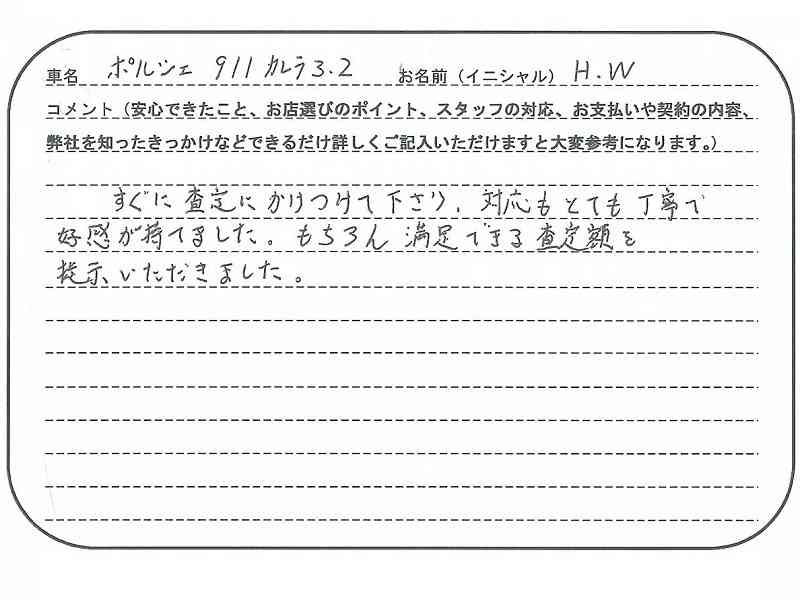 車名 ポルシェ 911 カレラ3.2 お名前（イニシャル） H.W
コメント（安心できたこと、お店選びのポイント、スタッフの対応、お支払いや契約の内容、
弊社を知ったきっかけなどできるだけ詳しくご記入いただけますと大変参考になります。）
すぐに査定にかけつけて下さり、対応もとても丁寧で
好感が持てました。もちろん満足できる査定額を
提示いただきました。